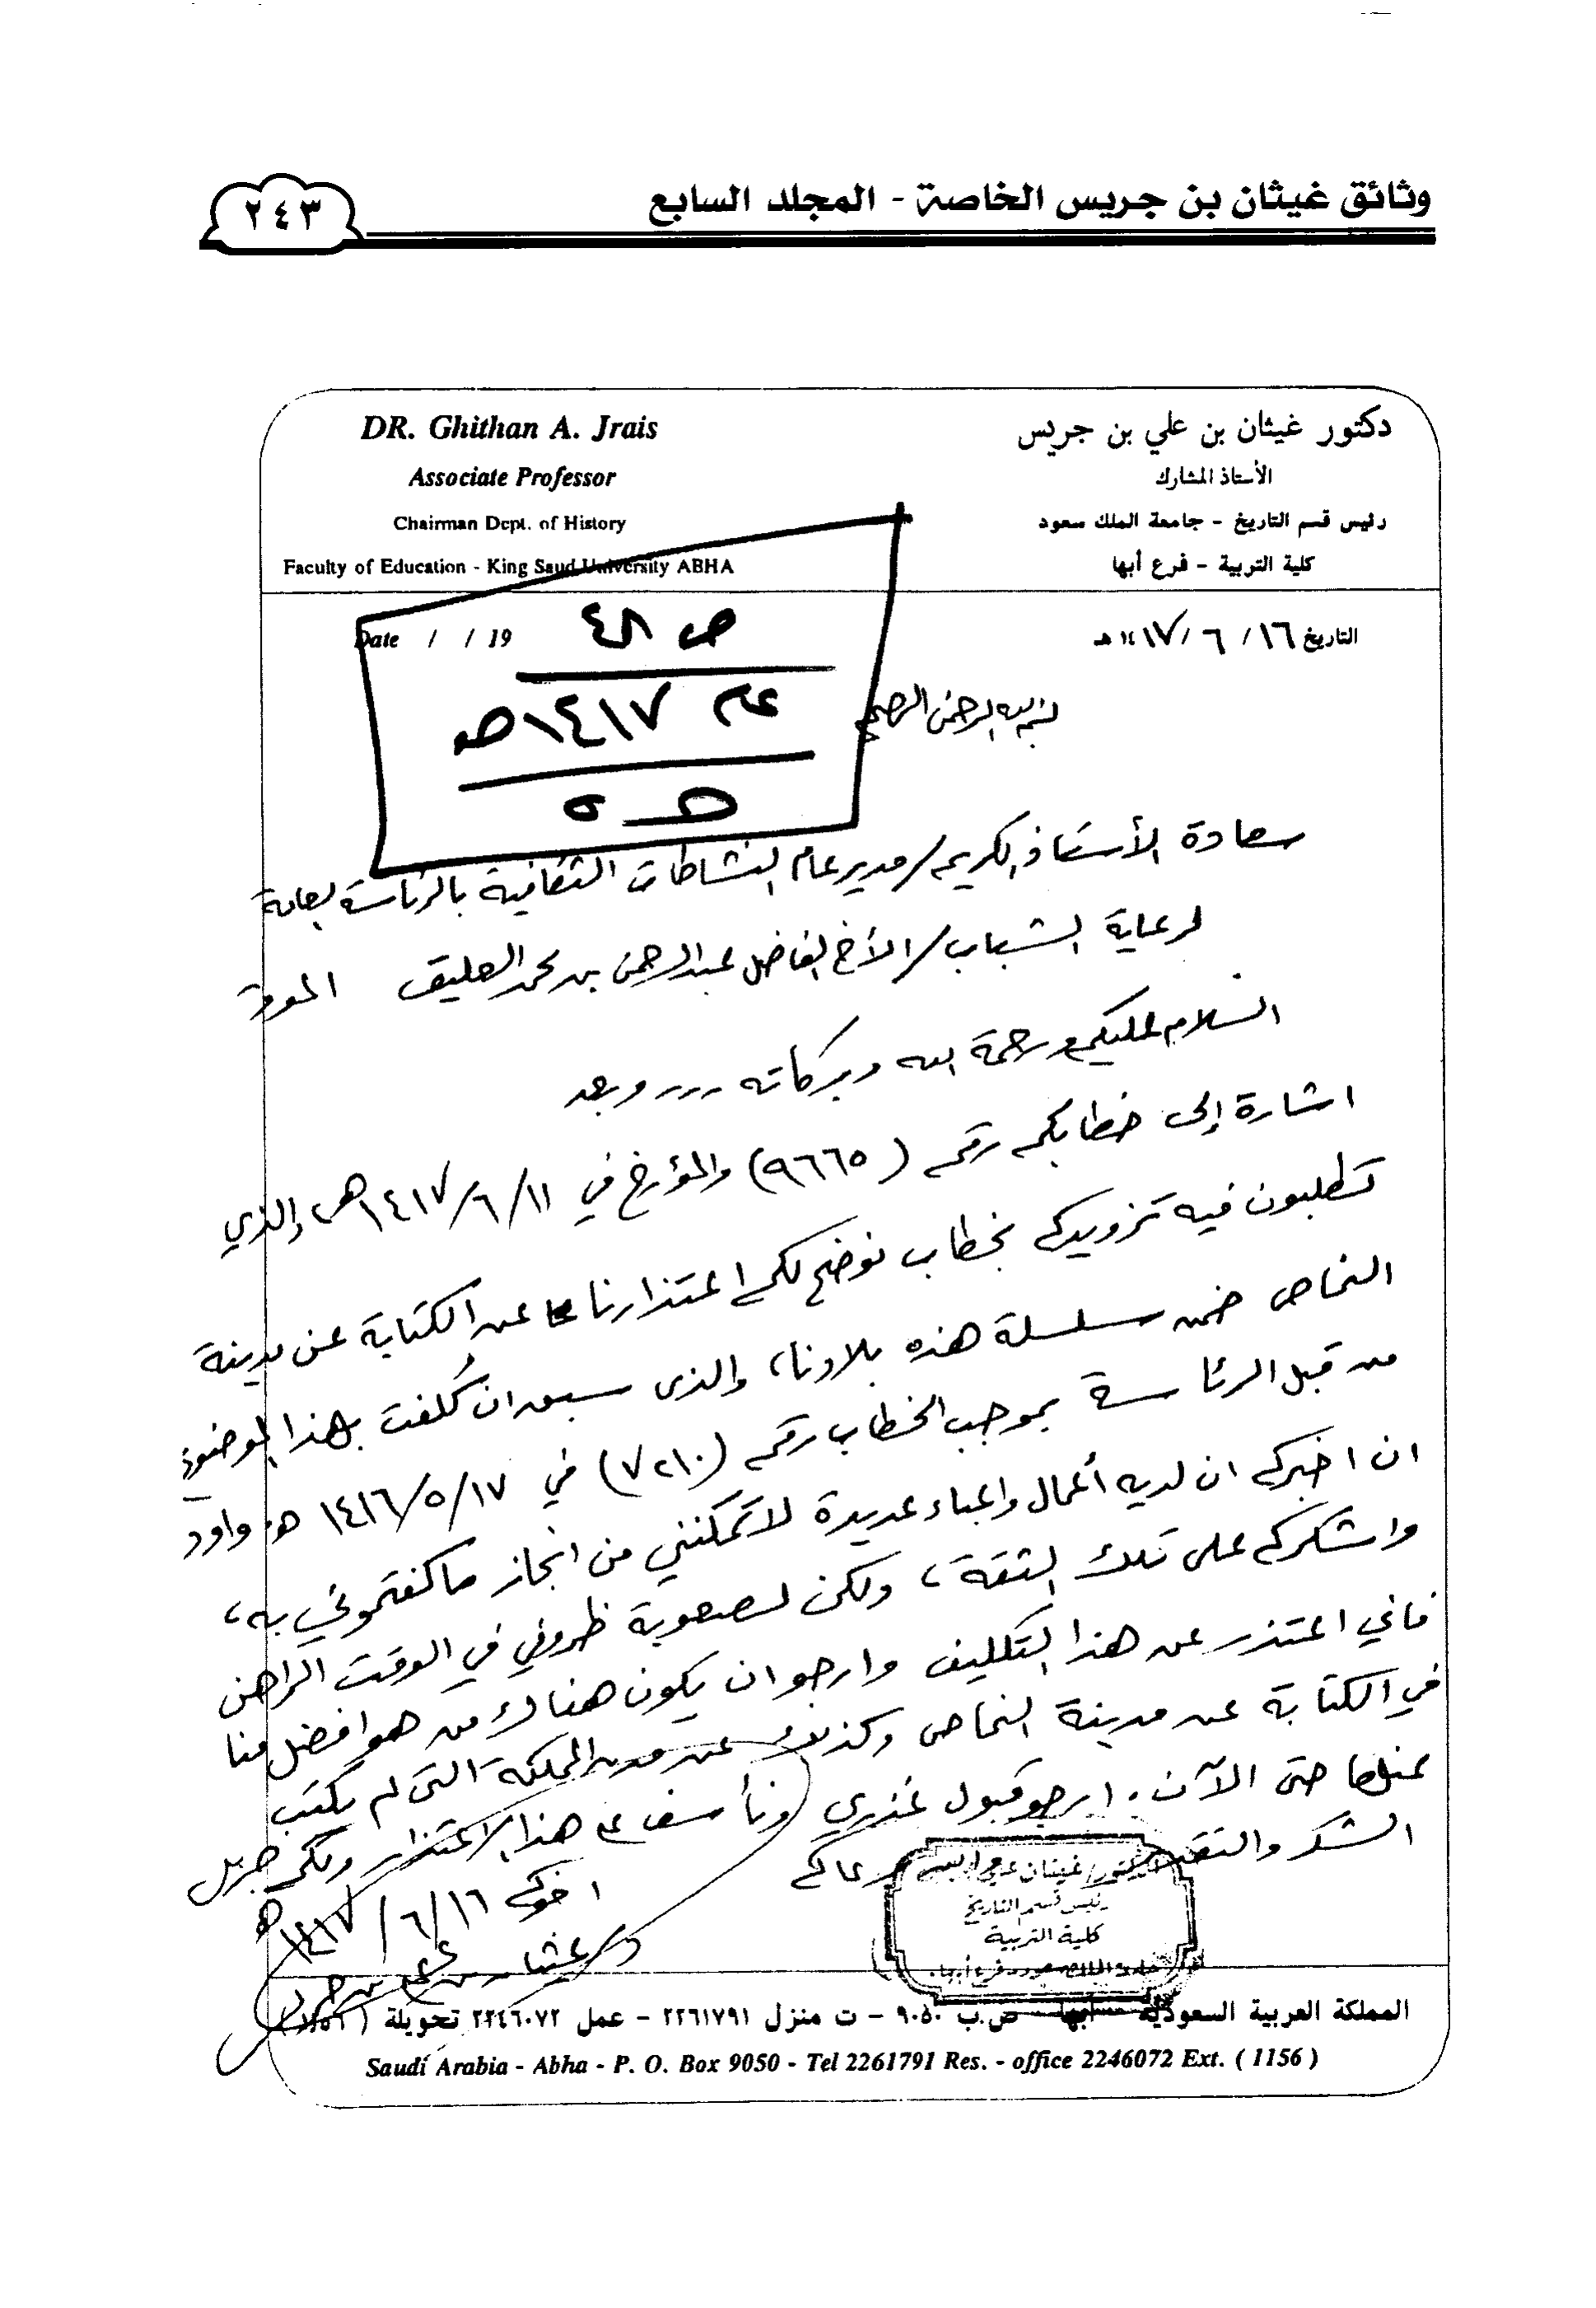 وثائق غيثان بن جريس الخاصة - المجلد السابع
٢٤٣
دكتور غيثان بن علي بن جريس
الأستاذ المشارك
رئيس قسم التاريخ - جامعة الملك سعود
كلية التربية - فرع أبها
DR. Ghithan A. Jrais
Associate Professor
Chairman Dept. of History
Faculty of Education - King Saud University ABHA
التاريخ ١٦ / ٦ / ١٤١٧ هـ
Date / / 19
ص
عام ١٤١٧هـ
بسم الله الرحمن الرحيم
سعادة الأستاذ الكريم / مدير عام النشاطات الثقافية بالرئاسة العامة
لرعاية الشباب / الأخ الفاضل عبدالرحمن بن محمد العليق الموقر
السلام عليكم ورحمة الله وبركاته ---- وبعد
اشارة إلى خطابكم رقم (٩٦٦٥) والمؤرخ في ١١/٦/١٤١٧هـ والذي
تطلبون فيه تزويدكم بخطاب نوضح لكم اعتذارنا عن الكتابة عن مدينة
النماص ضمن سلسلة هذه بلادنا، والذى سبق ان كُلفت بهذا الموضوع
من قبل الرئاسة بموجب الخطاب رقم (٧٢١٠) في ١٧/٥/١٤١٦ هـ واود
ان اخبركم ان لديه أعمال واعباء عديدة لا تمكنني من انجاز ما كلفتموني به،
واشكركم على تلك الثقة، ولكن لصعوبة ظروفي في الوقت الراهن
فاني اعتذر عن هذا التكليف وارجو ان يكون هناك من هو افضل منا
في الكتابة عن مدينة النماص وكذلك عن مدن المملكة التى لم يكتب
عنها حتى الآن. ارجو قبول عذري ونأسف على هذا الاعتذار ولكم جزيل
الشكر والتقدير رعاكم
اخوكم ١٦/٦/١٤١٧هـ
د/ غيثان بن علي بن جريس
الدكتور/ غيثان علي جريس
رئيس قسم التاريخ
كلية التربية
المملكة العربية السعودية - أبها - ص.ب ٩٠٥٠ - ت منزل ٢٢٦١٧٩١ - عمل ٢٢٤٦٠٧٢ تحويلة (١١٥٦)
Saudi Arabia - Abha - P. O. Box 9050 - Tel 2261791 Res. - office 2246072 Ext. ( 1156 )